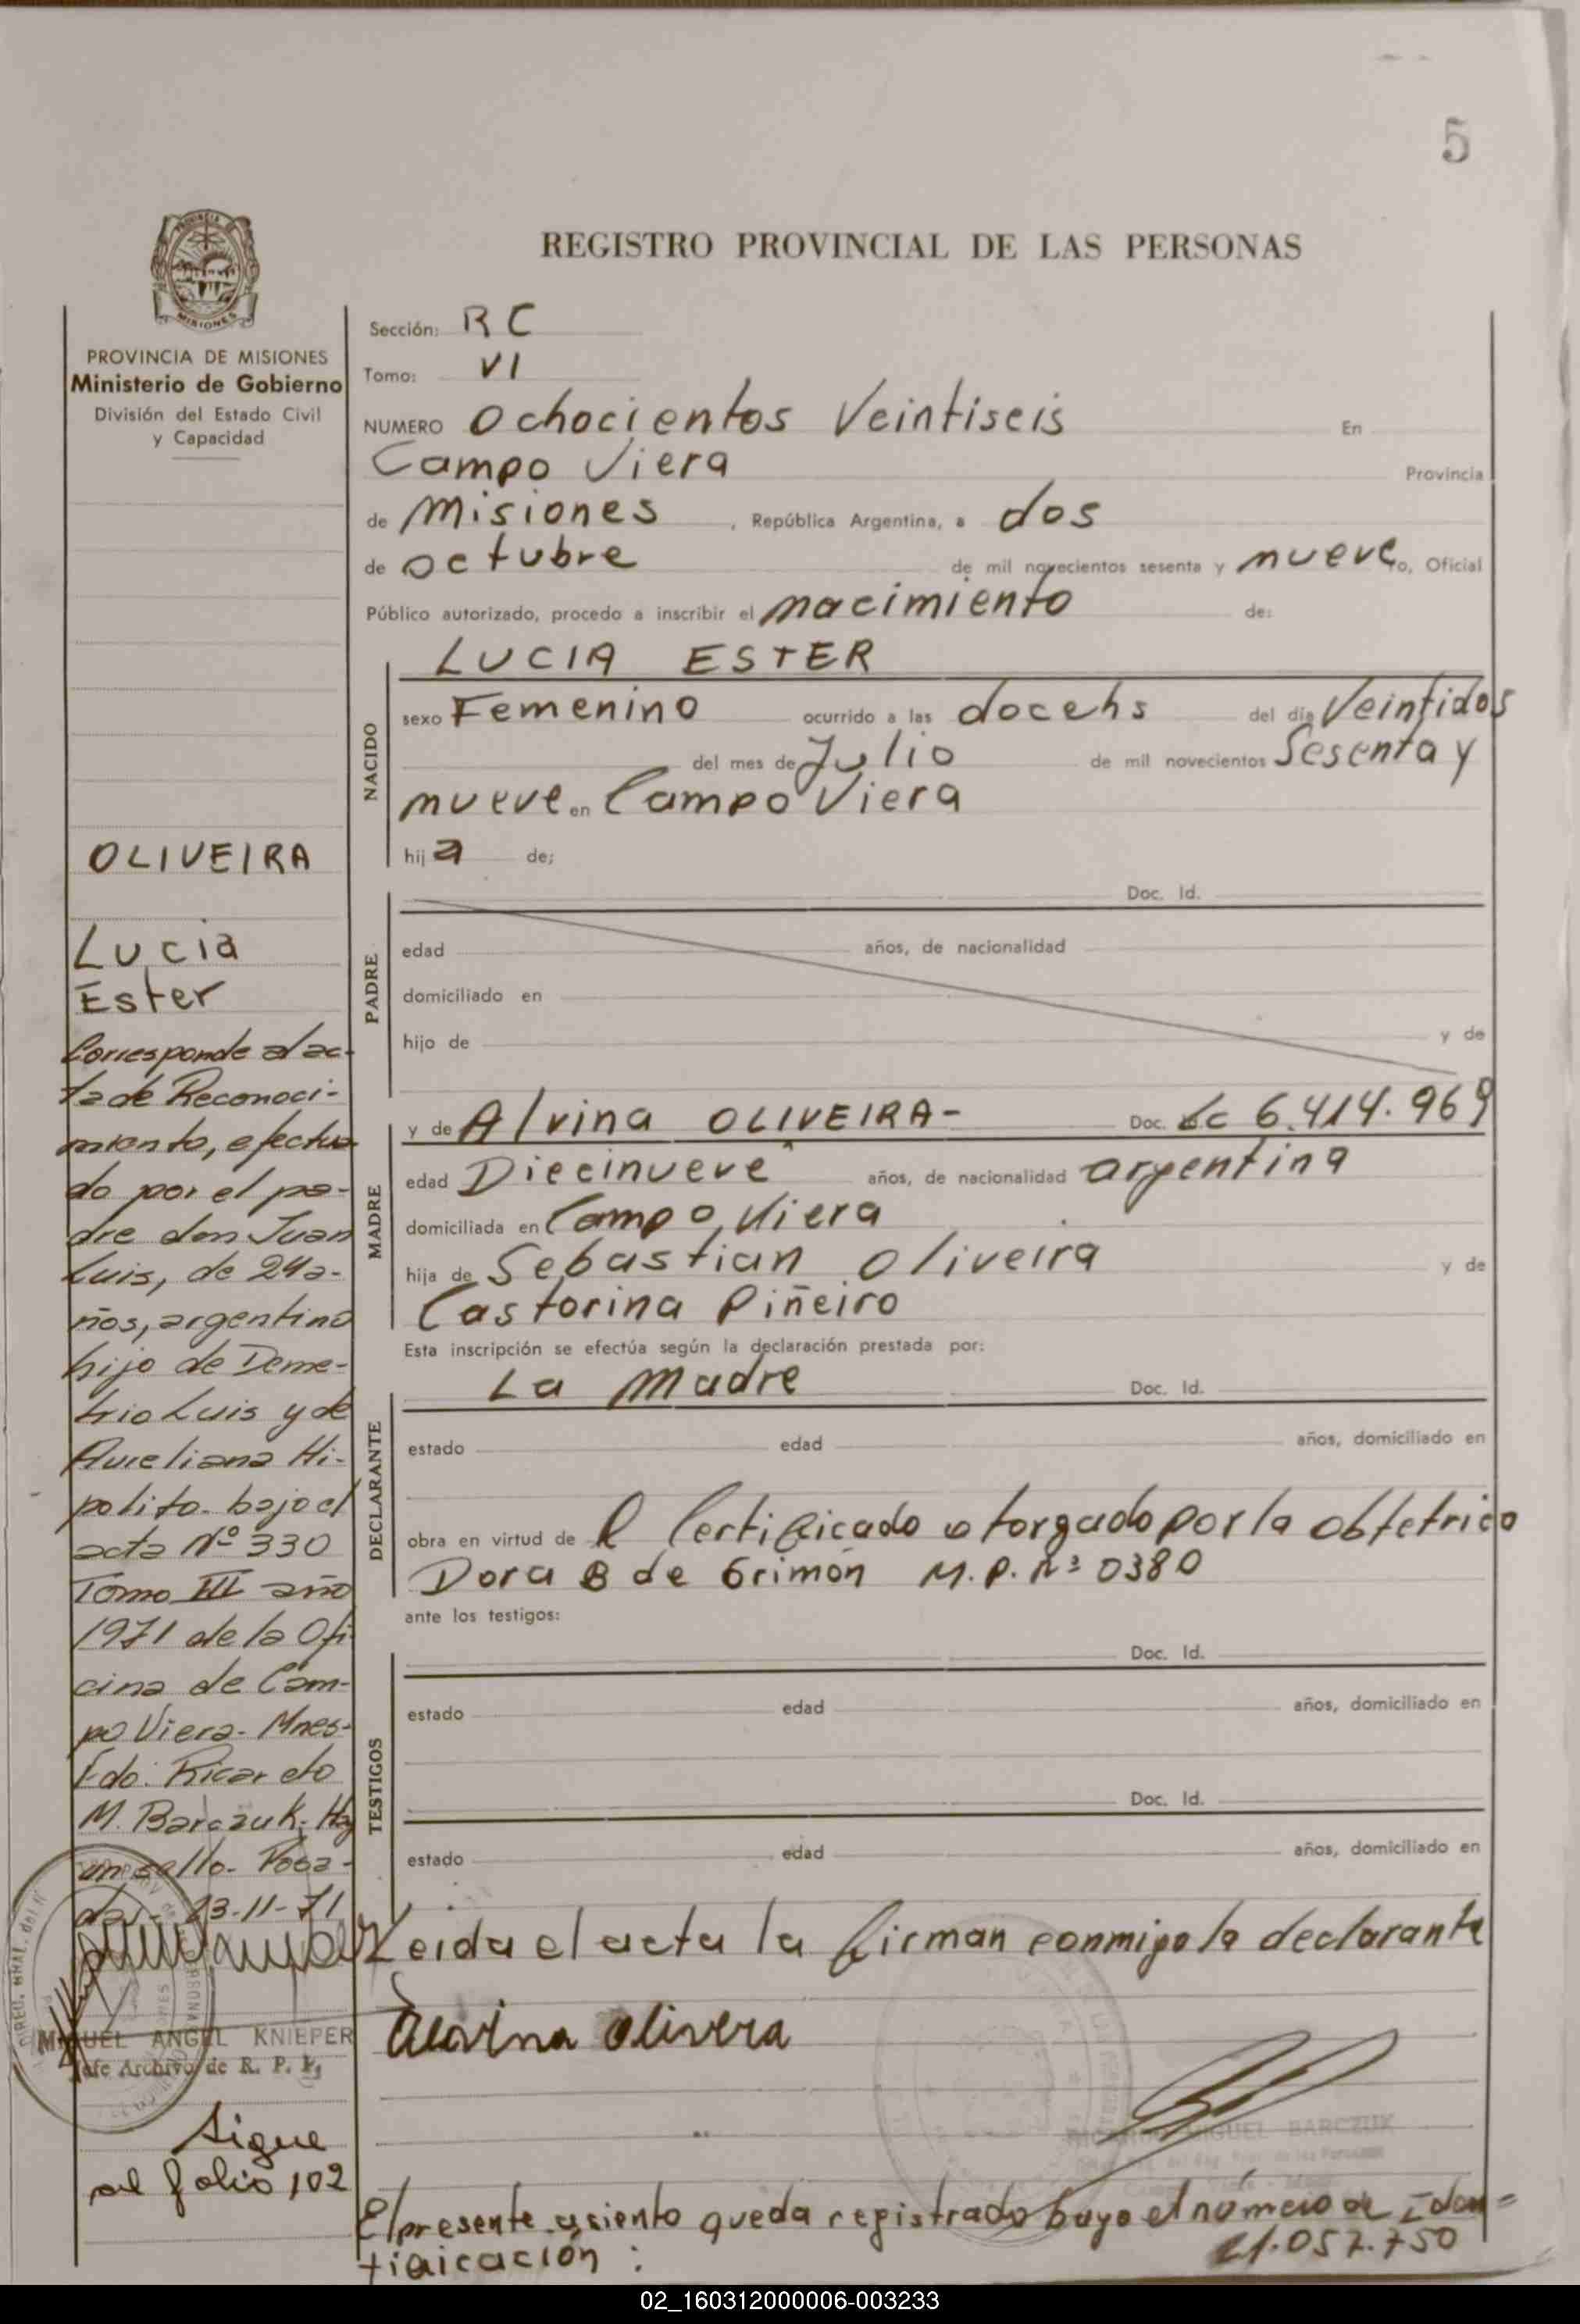 5
PROVINCIA
MISIONES
REGISTRO PROVINCIAL DE LAS PERSONAS
PROVINCIA DE MISIONES
Ministerio de Gobierno
División del Estado Civil
y Capacidad
OLIVEIRA
Lucia
Ester
Corresponde al ac-
ta de Reconoci-
miento, efectua
do por el pa-
dre don Juan
Luis, de 24 a-
ños, argentino
hijo de Deme-
trio Luis y de
Aureliana Hi-
polito. bajo el
acta Nº 330
Tomo III año
1971 de la Ofi
cina de Cam-
po Viera- Mnes-
Fdo: Ricardo
M. Barczuk. Hay
un sello. Posa-
das- 23-11-71
MIGUEL ANGEL KNIEPER
Jefe Archivo de R. P. P.
Sigue
al folio 102
Sección: RC
Tomo: VI
NUMERO Ochocientos Veintiseis En
Campo Viera Provincia
de Misiones , República Argentina, a dos
de octubre de mil novecientos sesenta y nueve yo, Oficial
Público autorizado, procedo a inscribir el nacimiento de:
NACIDO
LUCIA ESTER
sexo Femenino ocurrido a las docehs del día Veintidos
del mes de Julio de mil novecientos Sesenta y
nueve en Campo Viera
hija de;
PADRE
Doc. Id.
edad años, de nacionalidad
domiciliado en
hijo de y de
MADRE
y de Alvina OLIVEIRA- Doc. Lc 6.414.969
edad Diecinueve años, de nacionalidad argentina
domiciliada en Campo Viera
hija de Sebastian Oliveira y de
Castorina Piñeiro
Esta inscripción se efectúa según la declaración prestada por:
DECLARANTE
La madre Doc. Id.
estado edad años, domiciliado en
obra en virtud de l Certificado otorgado por la obtetrica
Dora B de Grimón M.P. Nº 0380
ante los testigos:
TESTIGOS
Doc. Id.
estado edad años, domiciliado en
Doc. Id.
estado edad años, domiciliado en
Leida el acta la firman conmigo la declarante
Alvina Olivera
MIGUEL BARCZUK
El presente asiento queda registrado bayo el número de Iden=
tificación : 21.057.750
02_160312000006-003233